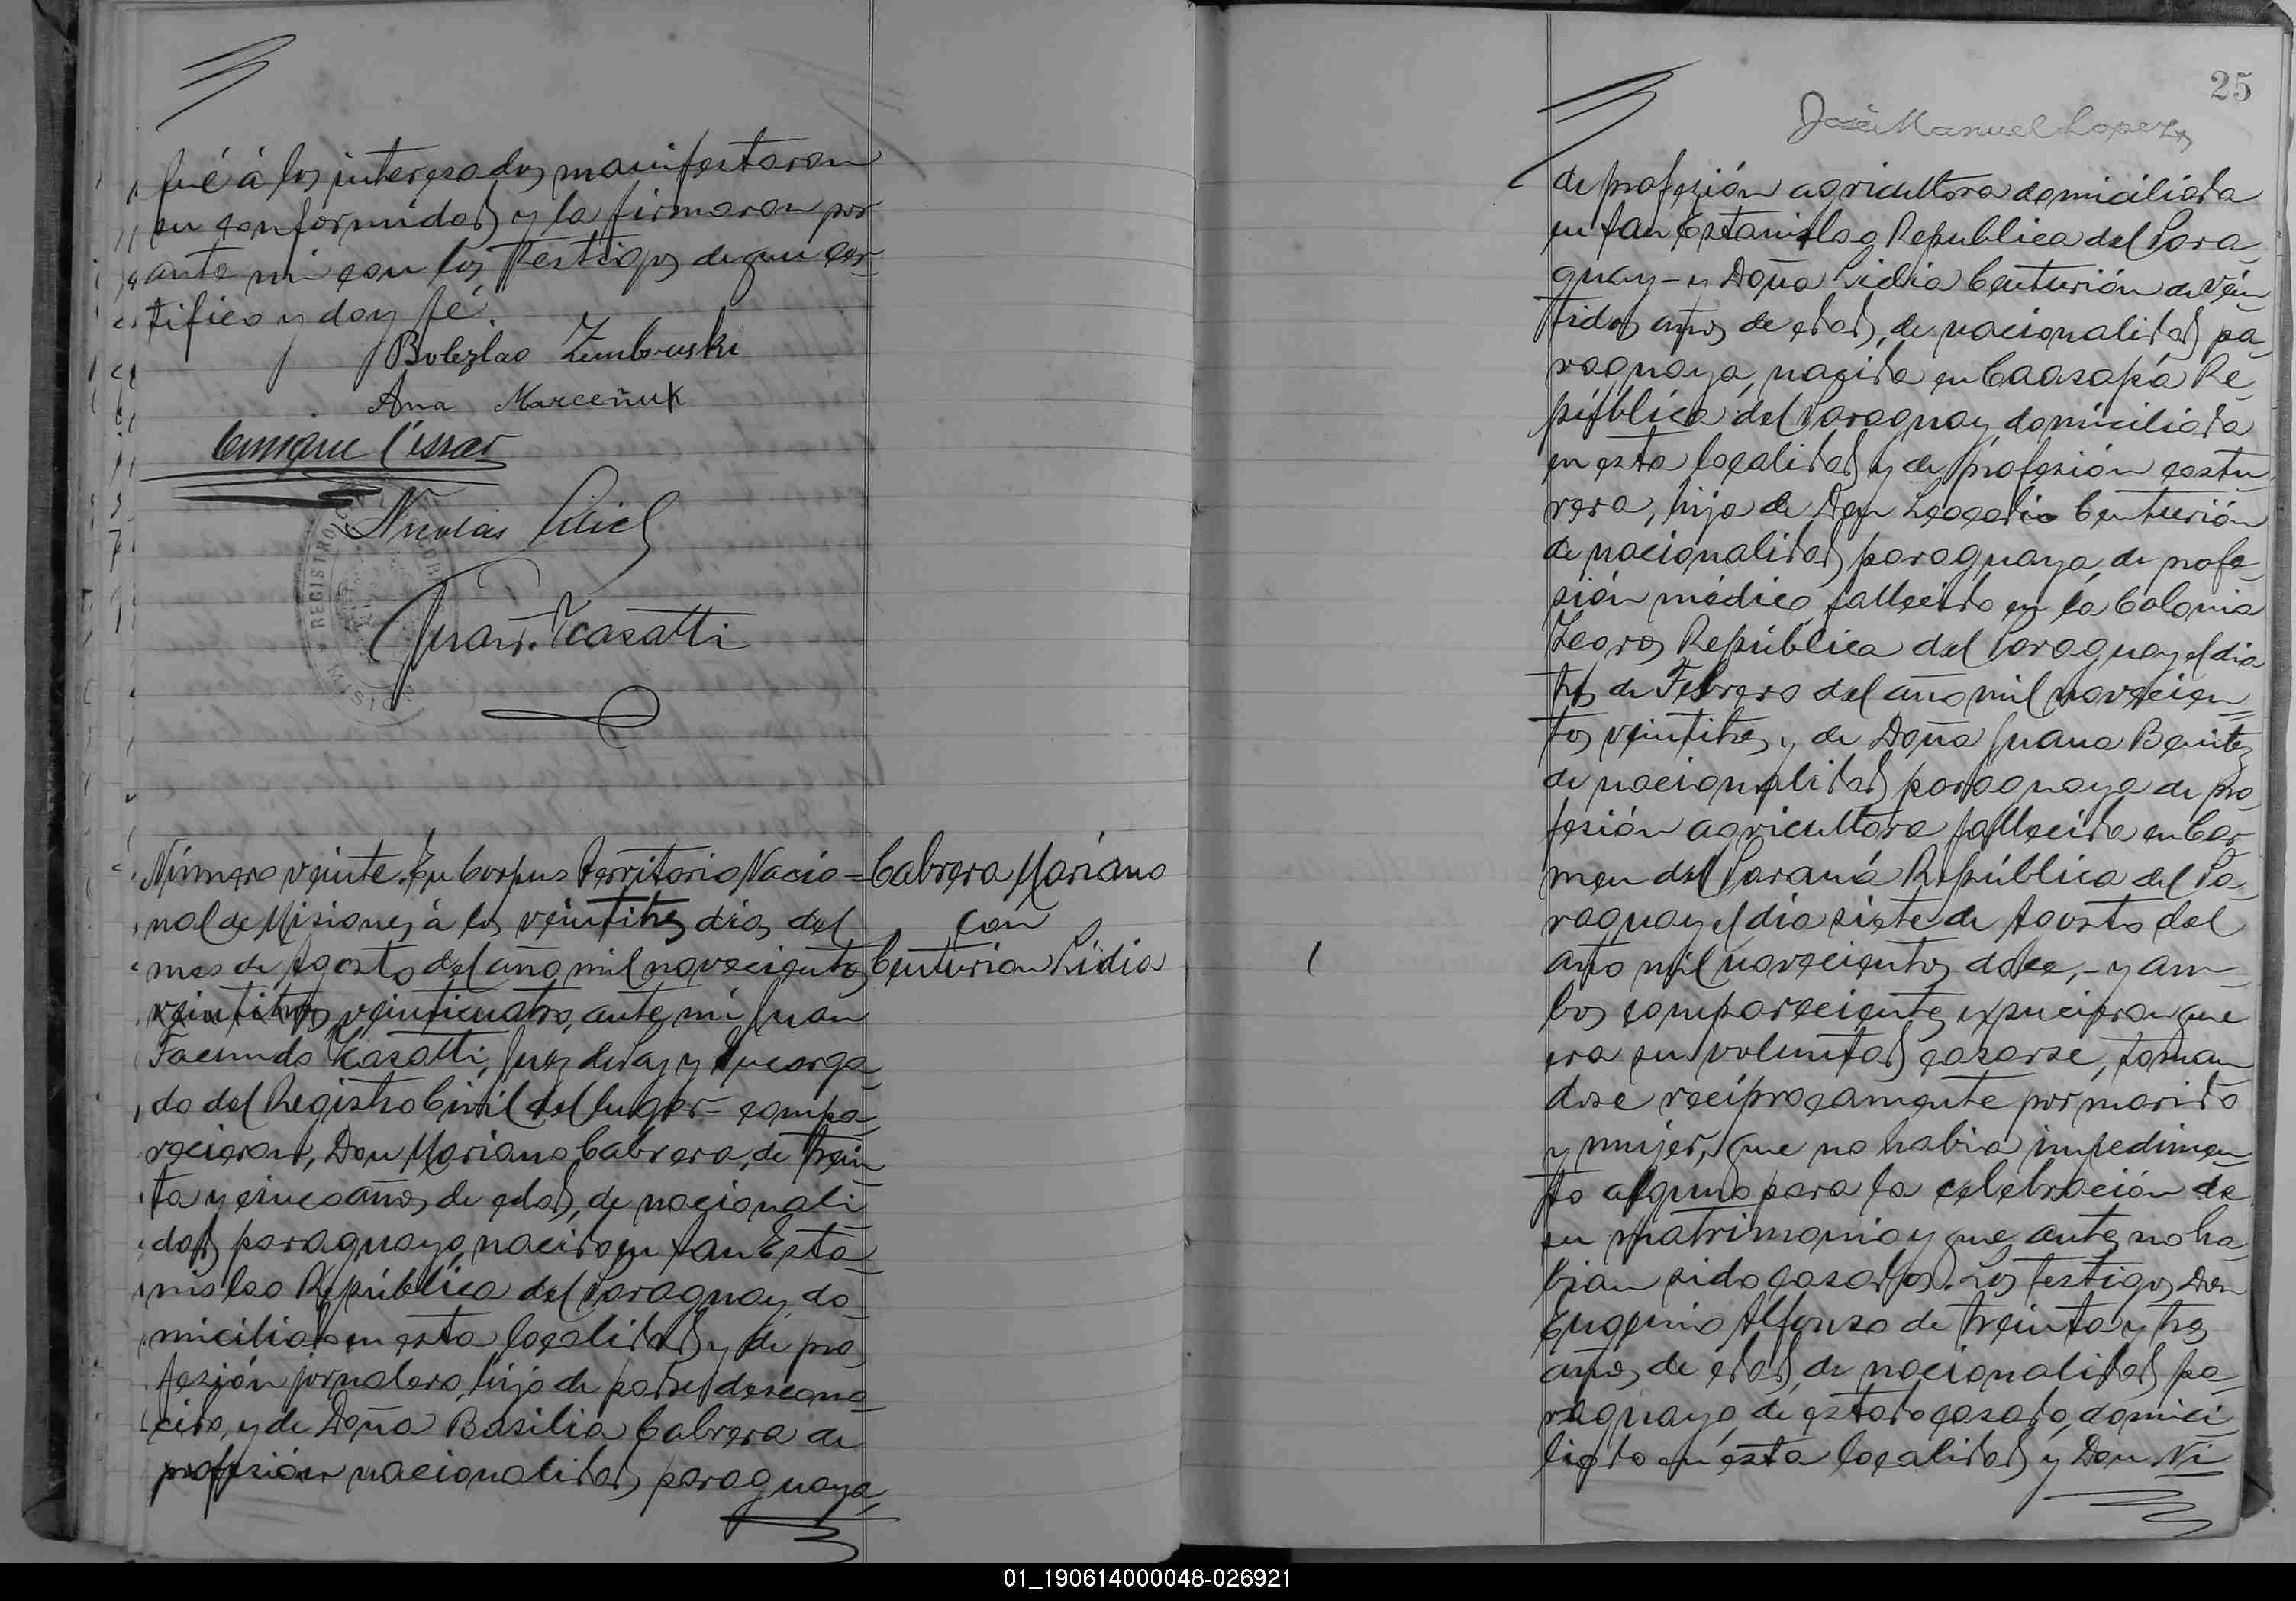 fué á los interesados, manifestaron
su conformidad y la firmaron por
ante mi con los testigos de que cer=
tifico y doy fé.
Boleslao Zembruski
Ana Marceñuk
Enrique
Nicolás
REGISTRO CIVIL
MISIONES
Juan F. Casatti
Número veinte. En Corpus Territorio Nacio=
nal de Misiones á los veintitres dias del
mes de Agosto del año mil novecientos
veintitres, veinticuatro, ante mi Juan
Facundo Casatti, Juez de Paz y Encarga=
do del Registro Civil del lugar - compa=
recieron, Don Mariano Cabrera, de trein
ta y cinco años de edad, de nacionali
dad paraguaya, nacido en San Esta=
nislao República del Paraguay, do
miciliado en esta localidad y de pro
fesión jornalero, hijo de padre descono
cido, y de Doña Basilia Cabrera de
profesión nacionalidad paraguaya,
Cabrera Mariano
con
Centurion Lidia
25
José Manuel Lopez
de profesión agricultora domiciliada
en San Estanislao Republica del Para
guay - y Doña Lidia Centurión de vein
tidos años de edad, de nacionalidad pa
raguaya, nacida en Caasapá Re
pública del Paraguay, domiciliada
en esta localidad y de profesión costu
rera, hija de Don Leocadio Centurión
de nacionalidad paraguaya, de profe
sión médico, fallecido en la Colonia
Zearos República del Paraguay el dia
tres de Febrero del año mil novecien=
tos veintitres, y de Doña Juana Benitez
de nacionalidad paraguaya de pro
fesión agricultora fallecida en Car
men del Paraná República del Pa
raguay el dia siete de Agosto del
año mil novecientos doce, - y am
bos comparecientes expusieron que
era su voluntad casarse, toman
dose recíprocamente por marido
y mujer, que no habia impedimen
to alguno para la celebración de
su matrimonio y que antes no ha
bian sido casados. Los testigos Don
Eugenio Alfonso de treinta y tres
años de edad, de nacionalidad pa
raguaya, de estado casado, domici
liado en esta localidad y Don Ni
01_190614000048-026921